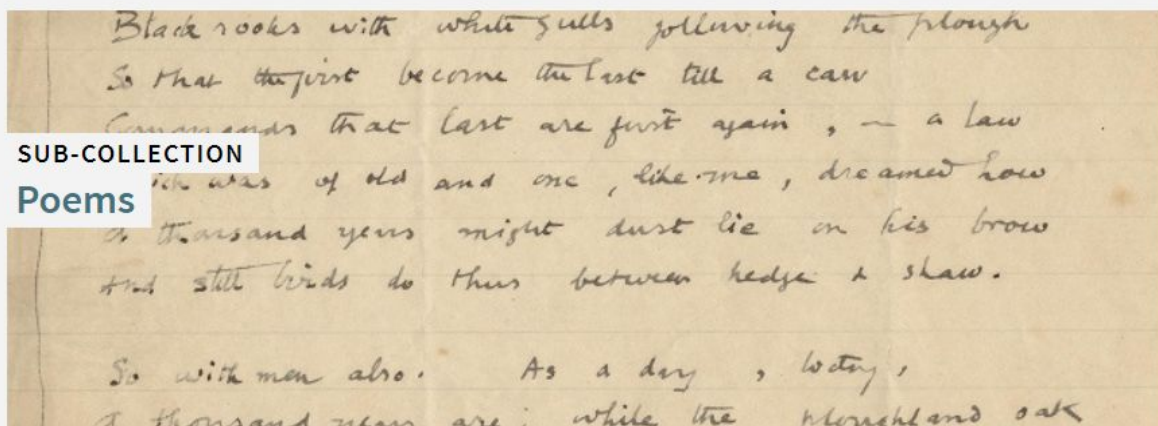 Black rooks with white gulls following the plough
So that the first become the last till a caw
Commands that last are first again, — a law
SUB-COLLECTION
ich was of old and one, like me, dreamed how
Poems
A thousand years might dust lie on his brow
And still birds do thus between hedge & shaw.
So with men also. As a day, today,
A thousand years are; while the ploughland oak